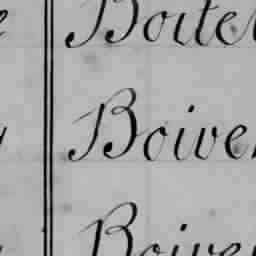 Boite
Boive
Boive